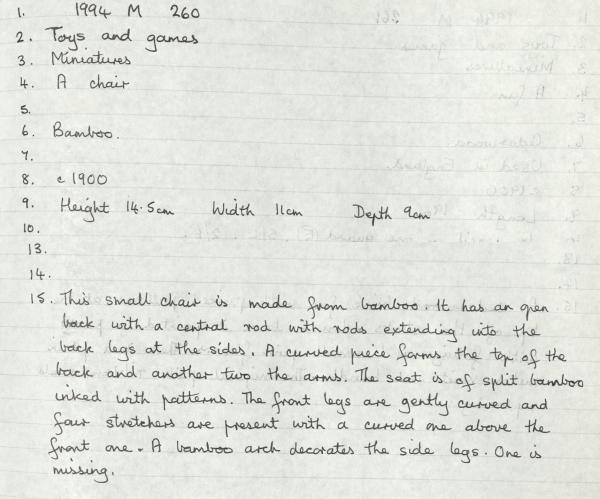 1. 1994 M 260
2. Toys and games
3. Miniatures
4. A chair
5.
6. Bamboo.
7.
8. c 1900
9. Height 14.5cm Width 11cm Depth 9cm
10.
13.
14.
15. This small chair is made from bamboo. It has an open
back with a central rod with rods extending into the
back legs at the sides. A curved piece forms the top of the
back and another two the arms. The seat is of split bamboo
inked with patterns. The front legs are gently curved and
four stretchers are present with a curved one above the
front one. A bamboo arch decorates the side legs. One is
missing.